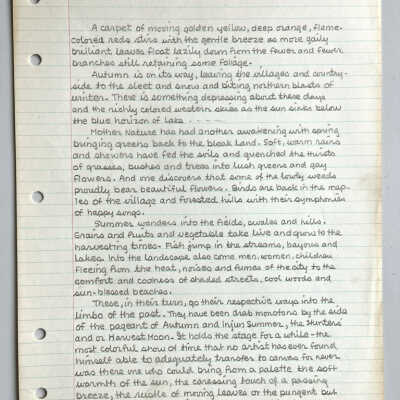 A carpet of moving golden yellow, deep orange, flame-
colored reds stirs with the gentle breeze as more gaily
brilliant leaves float lazily down from the fewer and fewer
branches still retaining some foliage.
Autumn is on its way, leaving the villages and country-
side to the sleet and snow and biting northern blasts of
winter. There is something depressing about these days
and the richly colored western skies as the sun sinks below
the blue horizon of lake . - - - -
Mother Nature has had another awakening with spring
bringing greens back to the bleak land. Soft, warm rains
and showers have fed the soils and quenched the thirsts
of grasses, bushes and trees into lush greens and gay
flowers. And one discovers that some of the lowly weeds
proudly bear beautiful flowers. Birds are back in the map-
les of the village and forested hills with their symphonies
of happy songs.
Summer wanders into the fields, swales and hills.
Grains and fruits and vegetable take live and grow to the
harvesting times. Fish jump in the streams, bayous and
lakes. Into the landscape also come men, women, children
fleeing from the heat, noises and fumes of the city to the
comfort and coolness of shaded streets, cool woods and
sun-blessed beaches.
These, in their turn, go their respective ways into the
limbo of the past. They have been drab monotons by the side
of the pageant of Autumn and Injun Summer, the Hunters'
and or Harvest Moon. It holds the stage for a while - the
most colorful show of time that no artist has ever found
himself able to adequately transfer to canvas for never
was there one who could bring from a palette the soft
warmth of the sun, the caressing touch of a passing
breeze, the rustle of moving leaves or the pungent but